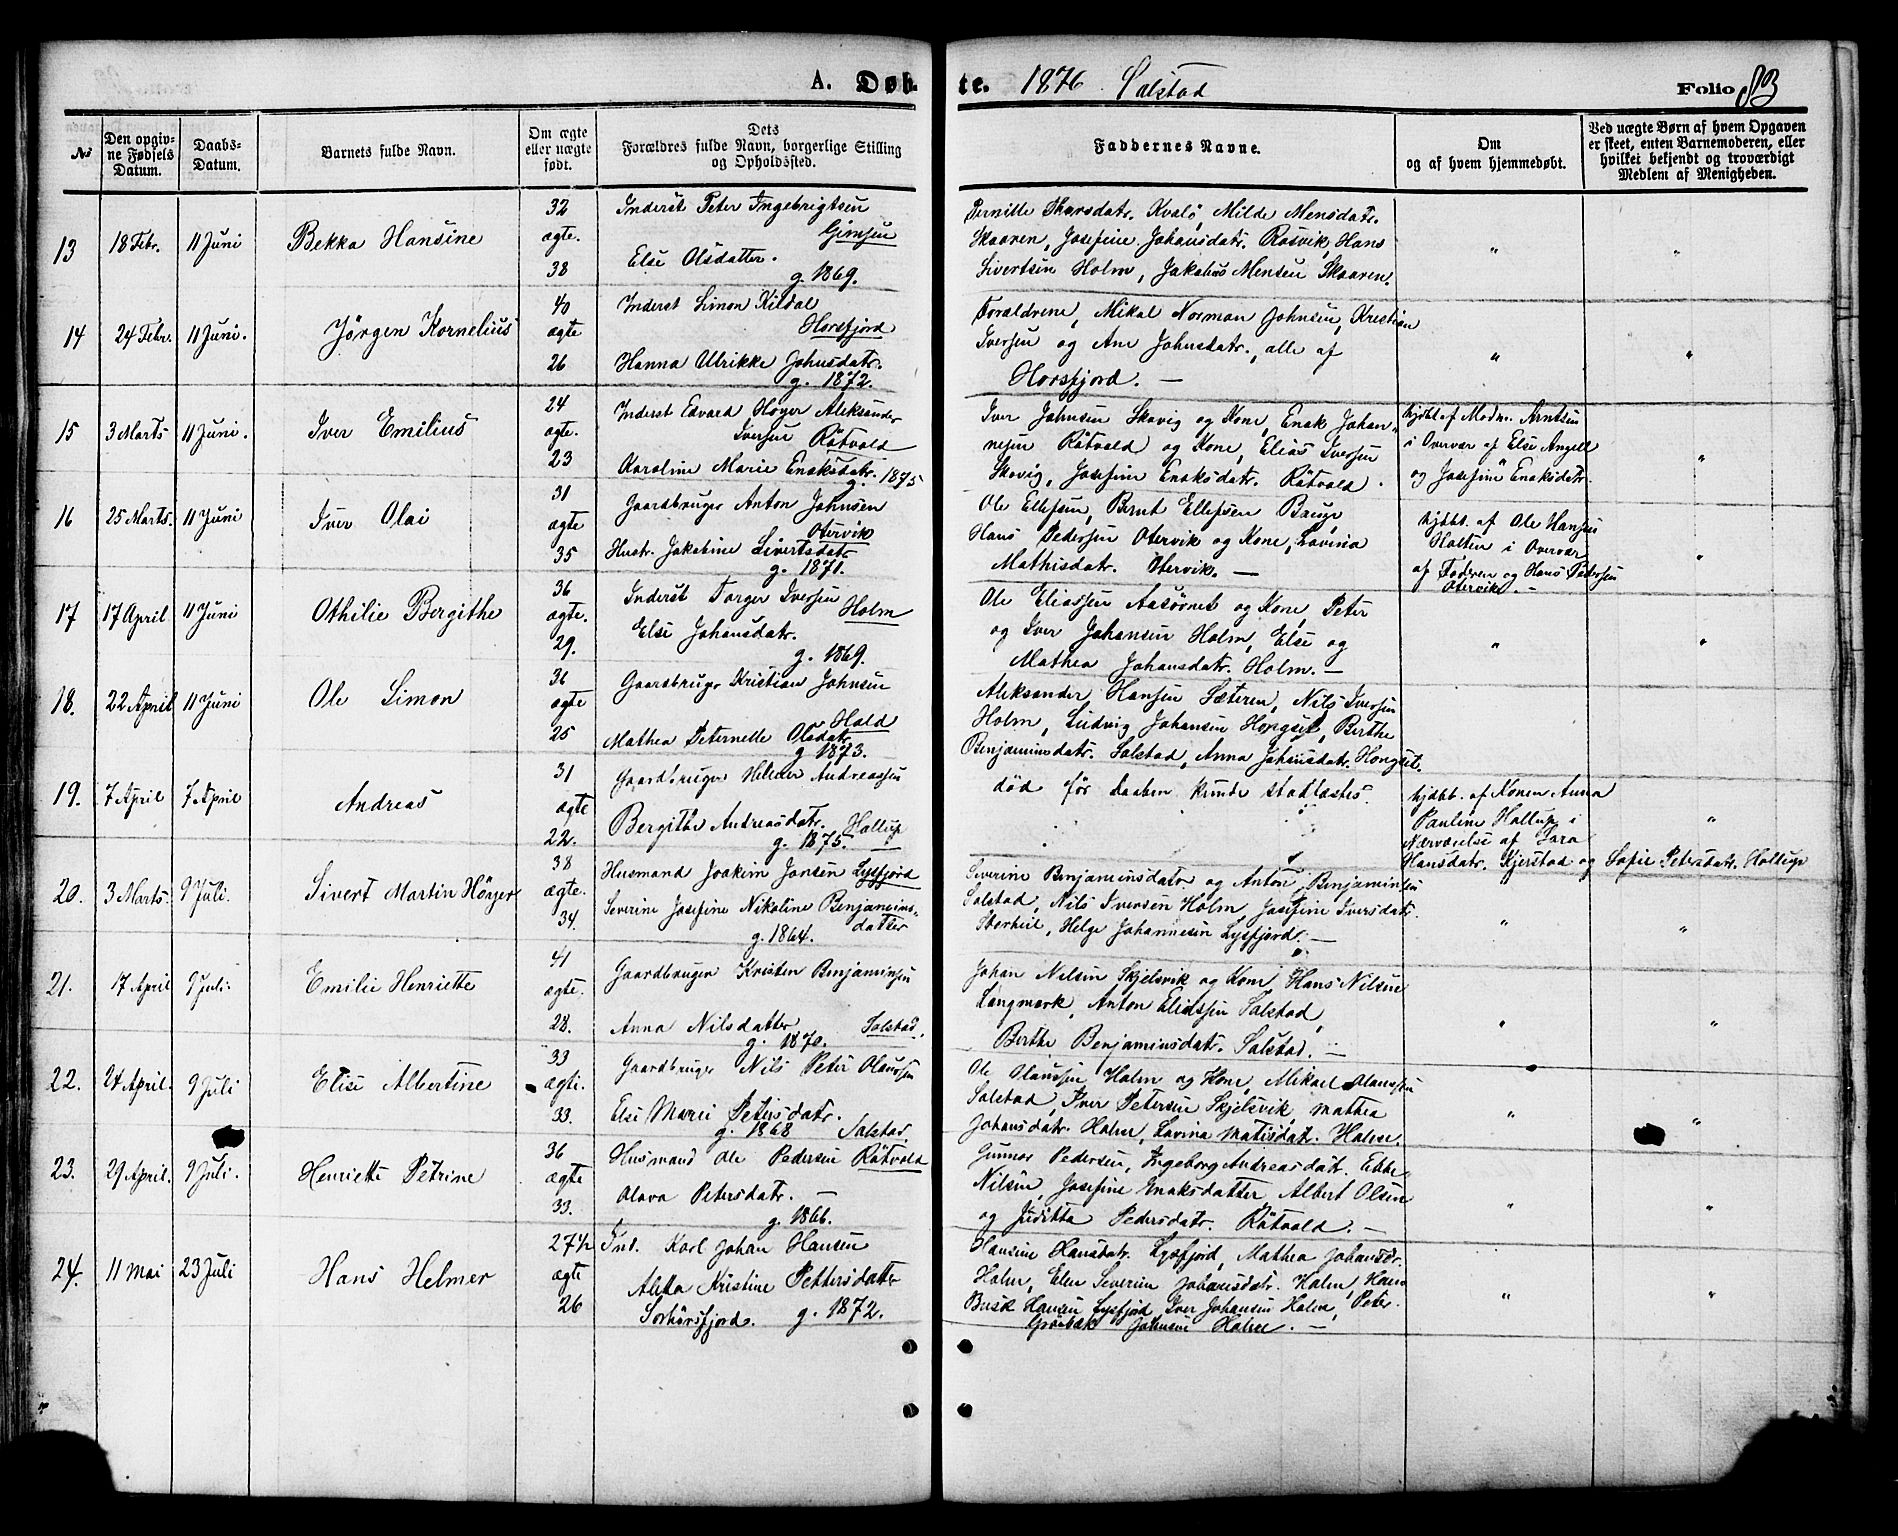 A. Døbte. 1876 Salstad
Folio 83
No
Den opgivne Fødsels Datum.
Daabs-Datum.
Barnets fulde Navn.
Om ægte eller uægte født.
Dets Forældres fulde Navn, borgerlige Stilling og Opholdssted.
Faddernes Navne.
Om og af hvem hjemmedøbt.
Ved uægte Børn af hvem Opgaven er skeet, enten Barnemoderen, eller hvilket bekjendt og troværdigt Medlem af Menigheden.
13 18 Febr. 11 Juni Bekka Hansine
32 ægte. 38
Inderst Peter Ingebrigtsen
Gimsen
Else Olsdatter.
g. 1869.
Pernille Skarsdatr. Kvalø, Milde Mensdatr.
Skaaren, Josefine Johansdatr. Røsvik, Hans
Sivertsen Holm, Jakobus Mensen Skaaren.
14 24 Febr. 11 Juni. Jørgen Kornelius
40 ægte 26
Inderst Simon Kildal
Horsfjord
Hanna Ulrikke Johnsdatr.
g. 1872.
Forældrene, Mikal Norman Johnsen, Kristian
Iversen og Ane Johnsdatr., alle af
Horsfjord. —
15 3 Marts 11 Juni. Iver Emilius
24 ægte. 23
Inderst Edvard Høyer Aleksander
Iversen Røtvold
Karoline Marie Enoksdatr.
g. 1875
Iver Johnsen Skavig og Kone, Enok Johan-
nesen Røtvold og Kone, Elias Iversen
Skovig, Josefine Enoksdatr. Røtvold.
hjdbt. af Madm. Arntsen
i Overvær af Else Angell
og Josefine Enoksdatr.
16 25 Marts. 11 Juni Iver Olai
31 ægte 35
Gaardbruger Anton Johnsen
Otervik
Hustr. Jakobine Sivertsdatr
g. 1871.
Ole Ellefsen, Bernt Ellefsen Bauge
Hans Pedersen Otervik og Kone, Lovina
Mathisdatr. Otervik. —
hjdbt. af Ole Hansen
Holten i Overvær
af Faderen og Hans Pedersen
Otervik. —
17 17 April 11 Juni Othilie Bergithe
36 ægte. 29.
Inderst Torger Iversen
Holm
Else Johansdatr.
g. 1869.
Ole Eliassen Aasøvnet og Kone, Peter
og Iver Johansen Holm, Else og
Mathea Johansdatr. Holm. —
18. 22 April 11 Juni Ole Simon
36 ægte 25
Gaardbruger Kristian Johnsen
Hald
Mathea Peternelle Olsdatr.
g. 1873.
Aleksander Hansen Sæteren, Nils Iversen
Holm, Ludvig Johansen Hongset, Berthe
Benjaminsdatr. Salstad, Anna Johansdatr. Hongset.
19. 7 April 7 April Andreas
31 ægte 22.
Gaardbruger Helmer Andreassen
Bergithe Andreasdatr. Hollup
g. 1875. —
død før Daaben kunde stadfæstes.
hjdbt. af Konen Anna
Pauline Hollup i
Nærværelse af Sara
Hansdatr. Kjerstad og Sofie Petersdatr. Hollup
20. 3 Marts. 9 Juli. Sivert Martin Höyer
38 ægte. 34.
Husmand Joakim Jonsen Lysfjord
Severine Josefine Nikoline Benjamins-
datter
g. 1864.
Severine Benjaminsdatr. og Anton Benjaminsen
Salstad, Nils Iversen Holm Josefine Iversdatr.
Storheil, Helge Johannesen Lysfjord. —
21. 17 April 9 Juli. Emilie Henriette
41 ægte. 28.
Gaardbruger Kristen Benjaminsen
Anna Nilsdatter Salstad.
g. 1870.
Johan Nilsen Skjelsvik og Kone, Hans Nilsen
Langmark, Anton Eliassen Salstad,
Berthe Benjaminsdatr. Salstad. —
22. 24 April. 9 Juli Elise Albertine
33 ægte. 33.
Gaardbruger Nils Peter Olaussen
Else Marie Petersdatr.
g. 1868 Salstad.
Ole Olaussen Holm og Kone, Mikael Olaussen
Salstad, Iver Petersen Skjelsvik, Mathea
Johansdatr. Holm, Lovina Matisdat. Holm.
23. 29 April. 9 Juli. Henriette Petrine
36 ægte 33.
Husmand Ole Pedersen Røtvold
Olava Petersdatr. —
g. 1866.
Gunner Pedersen, Ingeborg Andreasdatr. Ebbe
Nilsen, Josefine Enoksdatter Albert Olsen
og Juditta Pedersdatr. Røtvold. —
24. 11 Mai 23 Juli Hans Helmer
27½ ægte 26
Ind. Karl Johan Hansen
Aletta Kristine Pettersdatter
Sørhorsfjord. g. 1872.
Hansine Hansdatr. Lysfjord, Mathea Johansdr.
Holm, Elen Severine Johansdatr. Holm, Hans
Busk Hansen Lysfjord, Iver Johansen Holm, Peter
Grønbæk Johnsen Holm. —